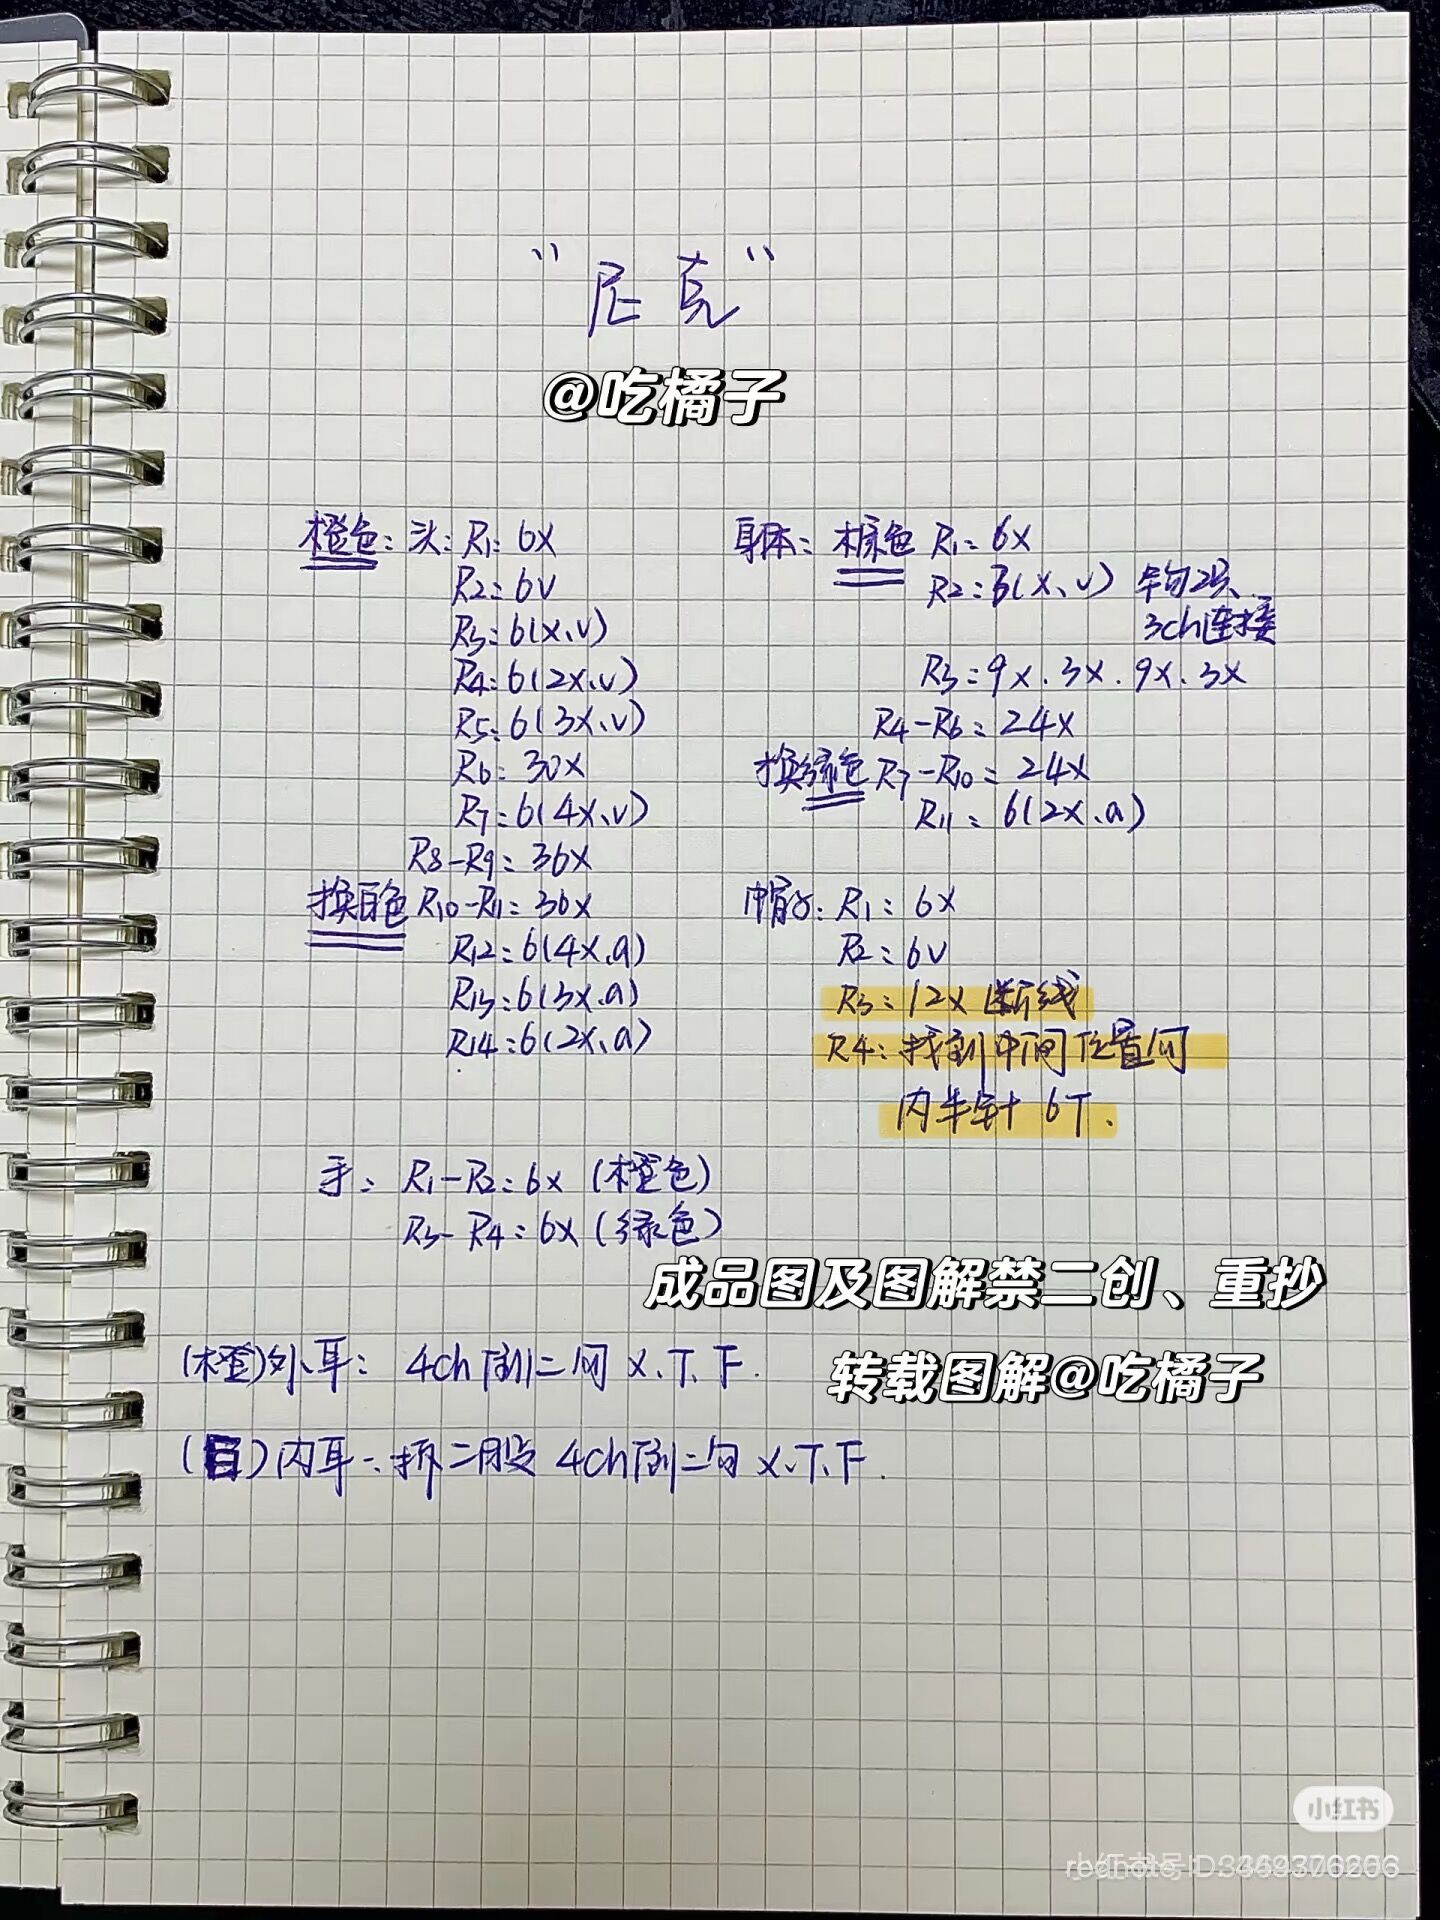 "尼克"
@吃橘子
橙色: 头: R1: 6X
R2: 6V
R3: 6(X、V)
R4: 6(2X、V)
R5: 6(3X、V)
R6: 30X
R7: 6(4X、V)
R8-R9: 36X
换白色 R10-R11: 36X
R12: 6(4X、A)
R13: 6(3X、A)
R14: 6(2X、A)
身体: 棕色 R1: 6X
R2: 3(X、V) 午勾2只、
3ch连接
R3: 9X.3X.9X.3X
R4-R6: 24X
换绿色 R7-R10: 24X
R11: 6(2X、A)
帽子: R1: 6X
R2: 6V
R3: 12X 断线
R4: 找到中间位置勾
内半针 6T.
手: R1-R2: 6X (橙色)
R3-R4: 6X (绿色)
成品图及图解禁二创、重抄
转载图解@吃橘子
(橙)外耳: 4ch 倒二勾 X.T.F.
(白)内耳: 拆二股 4ch倒二勾 X、T、F.
小红书